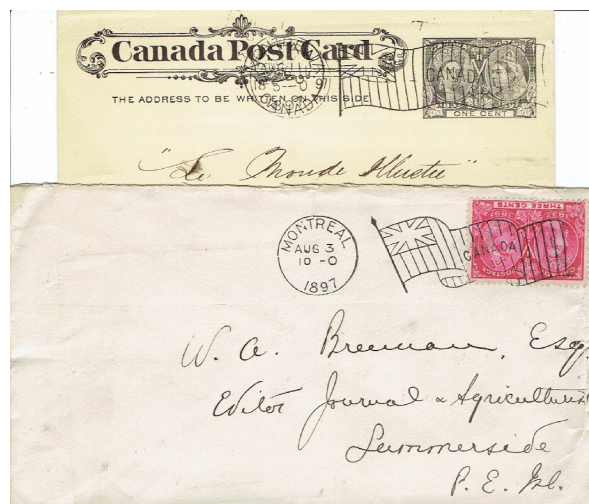 Canada Post Card
THE ADDRESS TO BE WRITTEN ON THIS SIDE
CANADA
ONE CENT
"Le Monde Illustré"
MONTREAL
AUG 3
10-0
1897
CANADA
THREE CENTS
1837 1897
W. A. Brennan, Esq
Editor Journal & Agriculturist
Summerside
P. E. Isl.